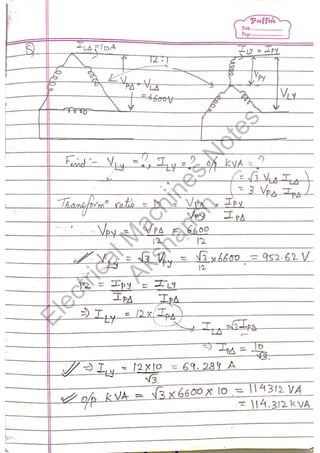 Puffin
Date
Page
Q) I_LΔ = 10A
12:1
I_LY = I_PY
V_PΔ = V_LΔ
= 6600V
V_PY
V_LY
Find :- V_LY = ?, I_LY = ? o/p KVA = ?
(= √3 V_LΔ I_LΔ
= 3 V_PΔ I_PΔ)
Transform^n ratio = 12 = V_PΔ / V_PY = I_PY / I_PΔ
V_PY = V_PΔ / 12 = 6600 / 12
V_LY = √3 V_PY = √3 × 6600 / 12 = 952.62 V
12 = I_PY / I_PΔ = I_LY / I_PΔ
⇒ I_LY = 12 × I_PΔ
I_LΔ = √3 I_PΔ
⇒ I_PΔ = 10 / √3
⇒ I_LY = 12×10 / √3 = 69.284 A
o/p KVA = √3 × 6600 × 10 = 114312 VA
= 114.312 KVA
Electrical Machines Notes